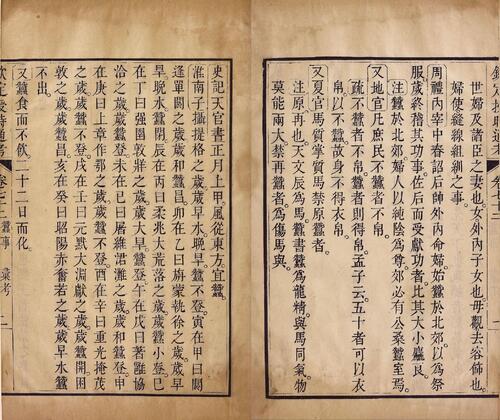 欽定授時通考 卷七十二
世婦及諸臣之妻也女外内子女也毋觀去容飾也
婦使縫線組紃之事。
周禮内宰中春詔后帥外内命婦始蠶於北郊以為祭
服。歲終稽其功事。佐后而受獻功者。比其大小麤良。
注蠶於北郊婦人以純陰為尊郊必有公桑蠶室焉。
又地官凡庶民不蠶者不帛。
疏不蠶者不帛。蠶者則得帛。孟子云五十者可以衣
帛。以不蠶故身不得衣帛。
又夏官馬質掌質馬禁原蠶者。
注原再也。天文辰為馬蠶書蠶為龍精與馬同氣物
莫能兩大禁再蠶者為傷馬與。
史記天官書正月上甲風從東方宜蠶。
淮南子攝提格之歲歲早水晚旱蠶不登。寅在甲曰閼
逢單閼之歲歲和蠶昌。卯在乙曰旃蒙執徐之歲歲早
旱晚水蠶閉辰在丙曰柔兆大荒落之歲蠶小登。巳
在丁曰强圉敦牂之歲歲大旱蠶登午在戊曰著雝協
洽之歲歲蠶登未在已曰屠維涒灘之歲歲和蠶登。申
在庚曰上章作鄂之歲歲蠶不登酉在辛曰重光掩茂
之歲歲蠶不登。戌在壬曰元黓大淵獻之歲歲蠶開。困
敦之歲歲蠶昌。亥在癸曰昭陽赤奮若之歲歲早水蠶
不出。
又蠶食而不飲。二十二日而化。
欽定授時通考 卷七十二 蠶事 彙考 二